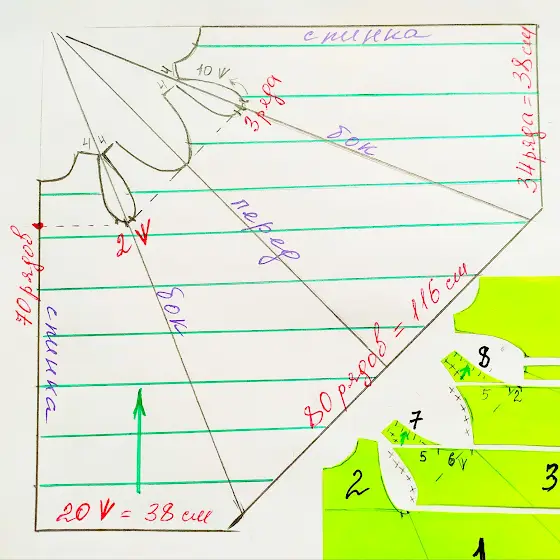 спинка
10 V
4 4
3 ряда
34 ряда = 38 см
бок
4 4
2 V
перед
70 рядов
бок
спинка
80 рядов = 116 см
20 V = 38 см
8
5 2
7
5 6 V
2
3
1